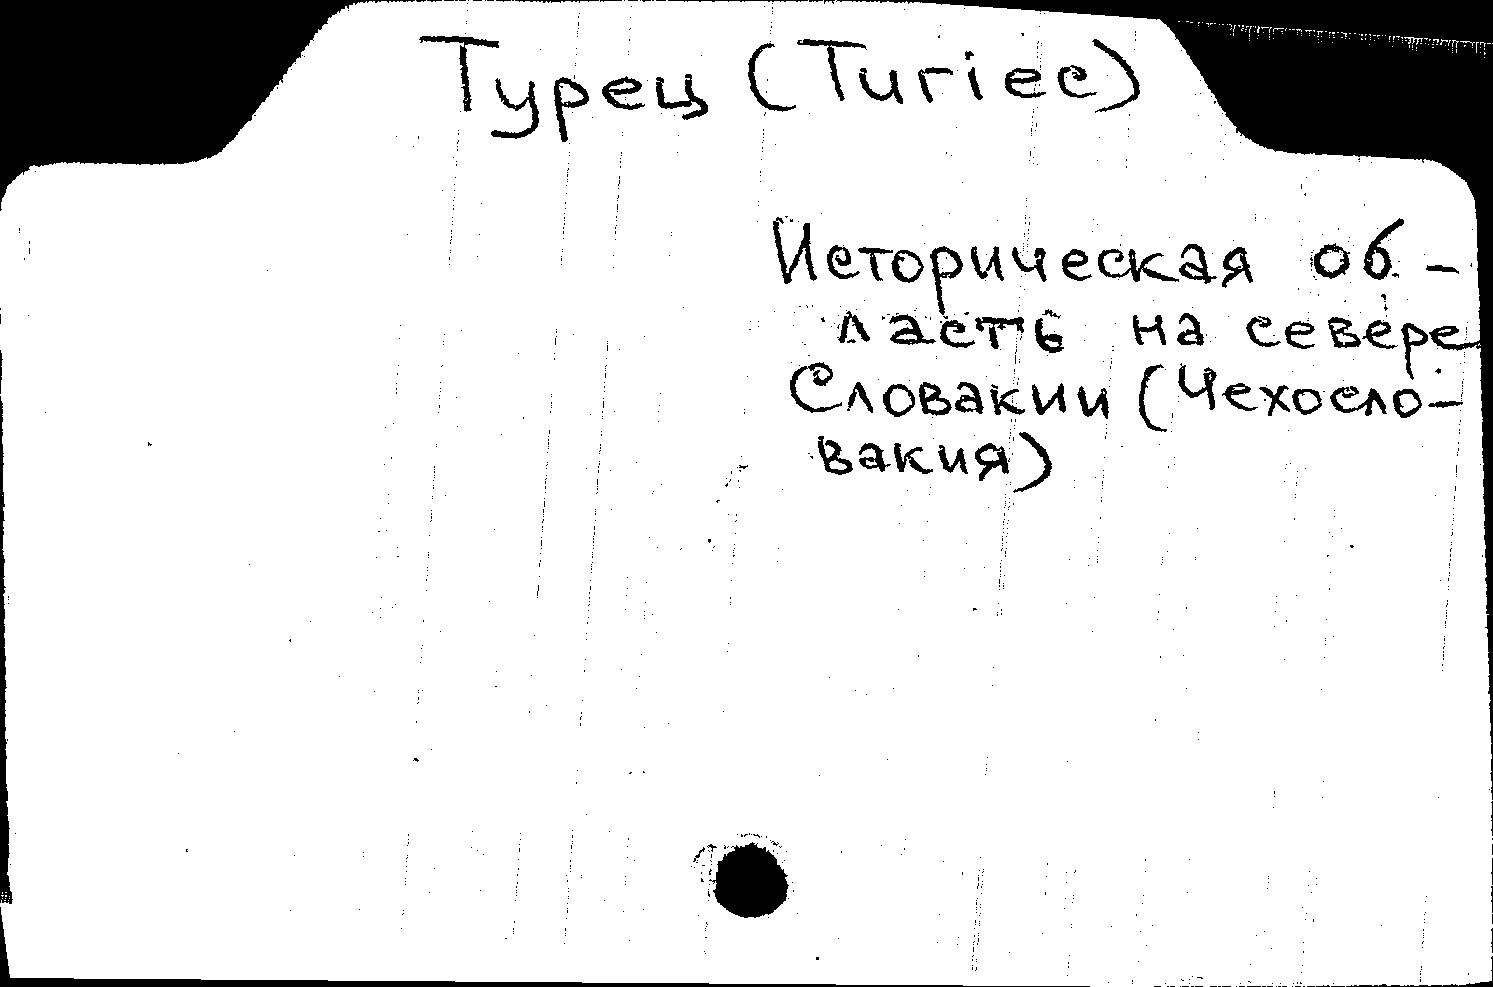 Турец (Turiec)
Историческая об-
ласть на севере
Словакии (Чехосло-
вакия)